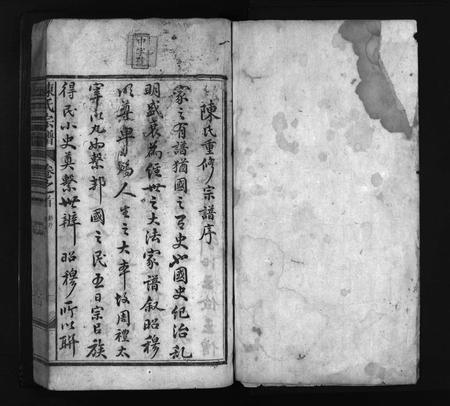 陳氏重修宗譜序
家之有譜猶國之有史也國史紀治亂
明盛衰為經世之大法家譜叙昭穆
明尊卑為人生之大本故周禮太
宰以九兩繫邦國之民五曰宗以族
得民小史奠繫世辨昭穆所以聯
陳氏宗譜 卷之首